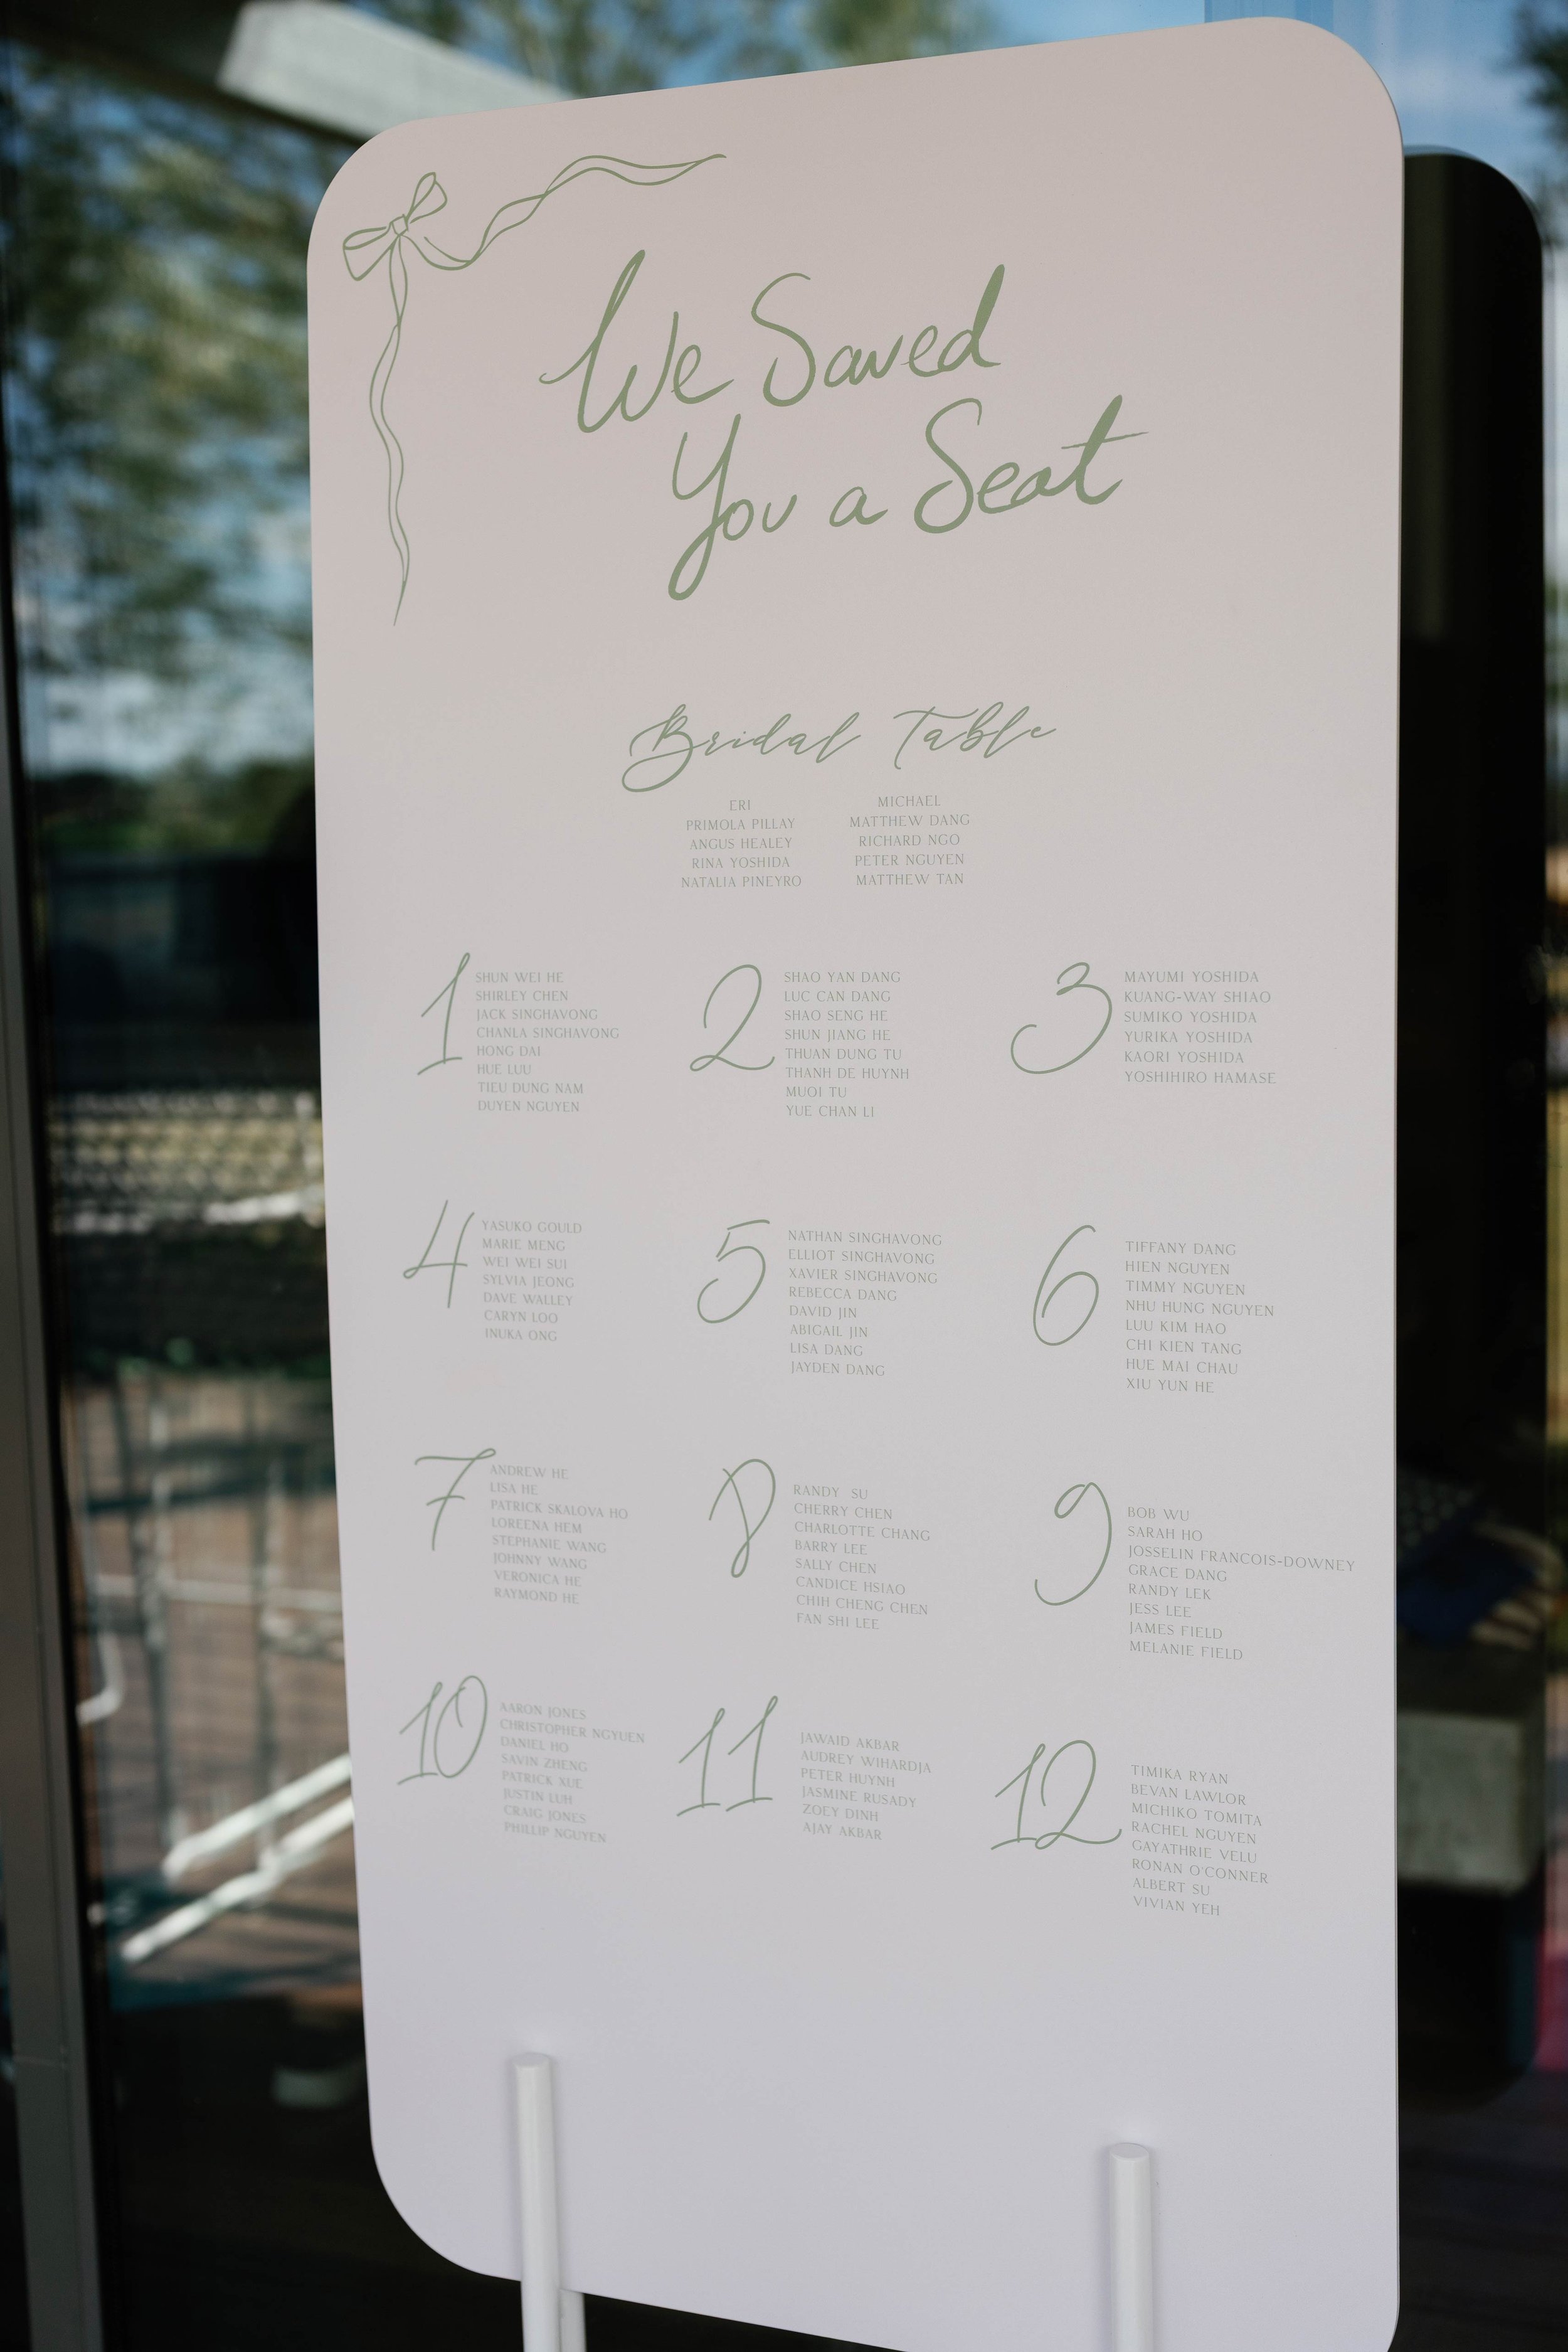 We Saved
You a Seat
Bridal Table
ERI
PRIMOLA PILLAY
ANGUS HEALEY
RINA YOSHIDA
NATALIA PINEYRO
MICHAEL
MATTHEW DANG
RICHARD NGO
PETER NGUYEN
MATTHEW TAN
1
SHUN WEI HE
SHIRLEY CHEN
JACK SINGHAVONG
CHANLA SINGHAVONG
HONG DAI
HUE LUU
TIEU DUNG NAM
DUYEN NGUYEN
2
SHAO YAN DANG
LUC CAN DANG
SHAO SENG HE
SHUN JIANG HE
THUAN DUNG TU
THANH DE HUYNH
MUOI TU
YUE CHAN LI
3
MAYUMI YOSHIDA
KUANG-WAY SHIAO
SUMIKO YOSHIDA
YURIKA YOSHIDA
KAORI YOSHIDA
YOSHIHIRO HAMASE
4
YASUKO GOULD
MARIE MENG
WEI WEI SUI
SYLVIA JEONG
DAVE WALLEY
CARYN LOO
INUKA ONG
5
NATHAN SINGHAVONG
ELLIOT SINGHAVONG
XAVIER SINGHAVONG
REBECCA DANG
DAVID JIN
ABIGAIL JIN
LISA DANG
JAYDEN DANG
6
TIFFANY DANG
HIEN NGUYEN
TIMMY NGUYEN
NHU HUNG NGUYEN
LUU KIM HAO
CHI KIEN TANG
HUE MAI CHAU
XIU YUN HE
7
ANDREW HE
LISA HE
PATRICK SKALOVA HO
LOREENA HEM
STEPHANIE WANG
JOHNNY WANG
VERONICA HE
RAYMOND HE
8
RANDY SU
CHERRY CHEN
CHARLOTTE CHANG
BARRY LEE
SALLY CHEN
CANDICE HSIAO
CHIH CHENG CHEN
FAN SHI LEE
9
BOB WU
SARAH HO
JOSSELIN FRANCOIS-DOWNEY
GRACE DANG
RANDY LEK
JESS LEE
JAMES FIELD
MELANIE FIELD
10
AARON JONES
CHRISTOPHER NGYUEN
DANIEL HO
SAVIN ZHENG
PATRICK XUE
JUSTIN LUH
CRAIG JONES
PHILLIP NGUYEN
11
JAWAID AKBAR
AUDREY WIHARDJA
PETER HUYNH
JASMINE RUSADY
ZOEY DINH
AJAY AKBAR
12
TIMIKA RYAN
BEVAN LAWLOR
MICHIKO TOMITA
RACHEL NGUYEN
GAYATHRIE VELU
RONAN O'CONNER
ALBERT SU
VIVIAN YEH